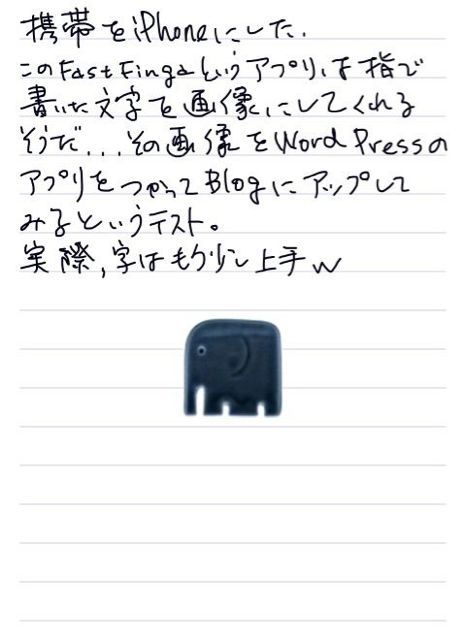 携帯をiPhoneにした.
このFastFingaというアプリ,は指で
書いた文字を画像にしてくれる
そうだ...その画像をWordPressの
アプリをつかってBlogにアップして
みるというテスト。
実際,字はもう少し上手w